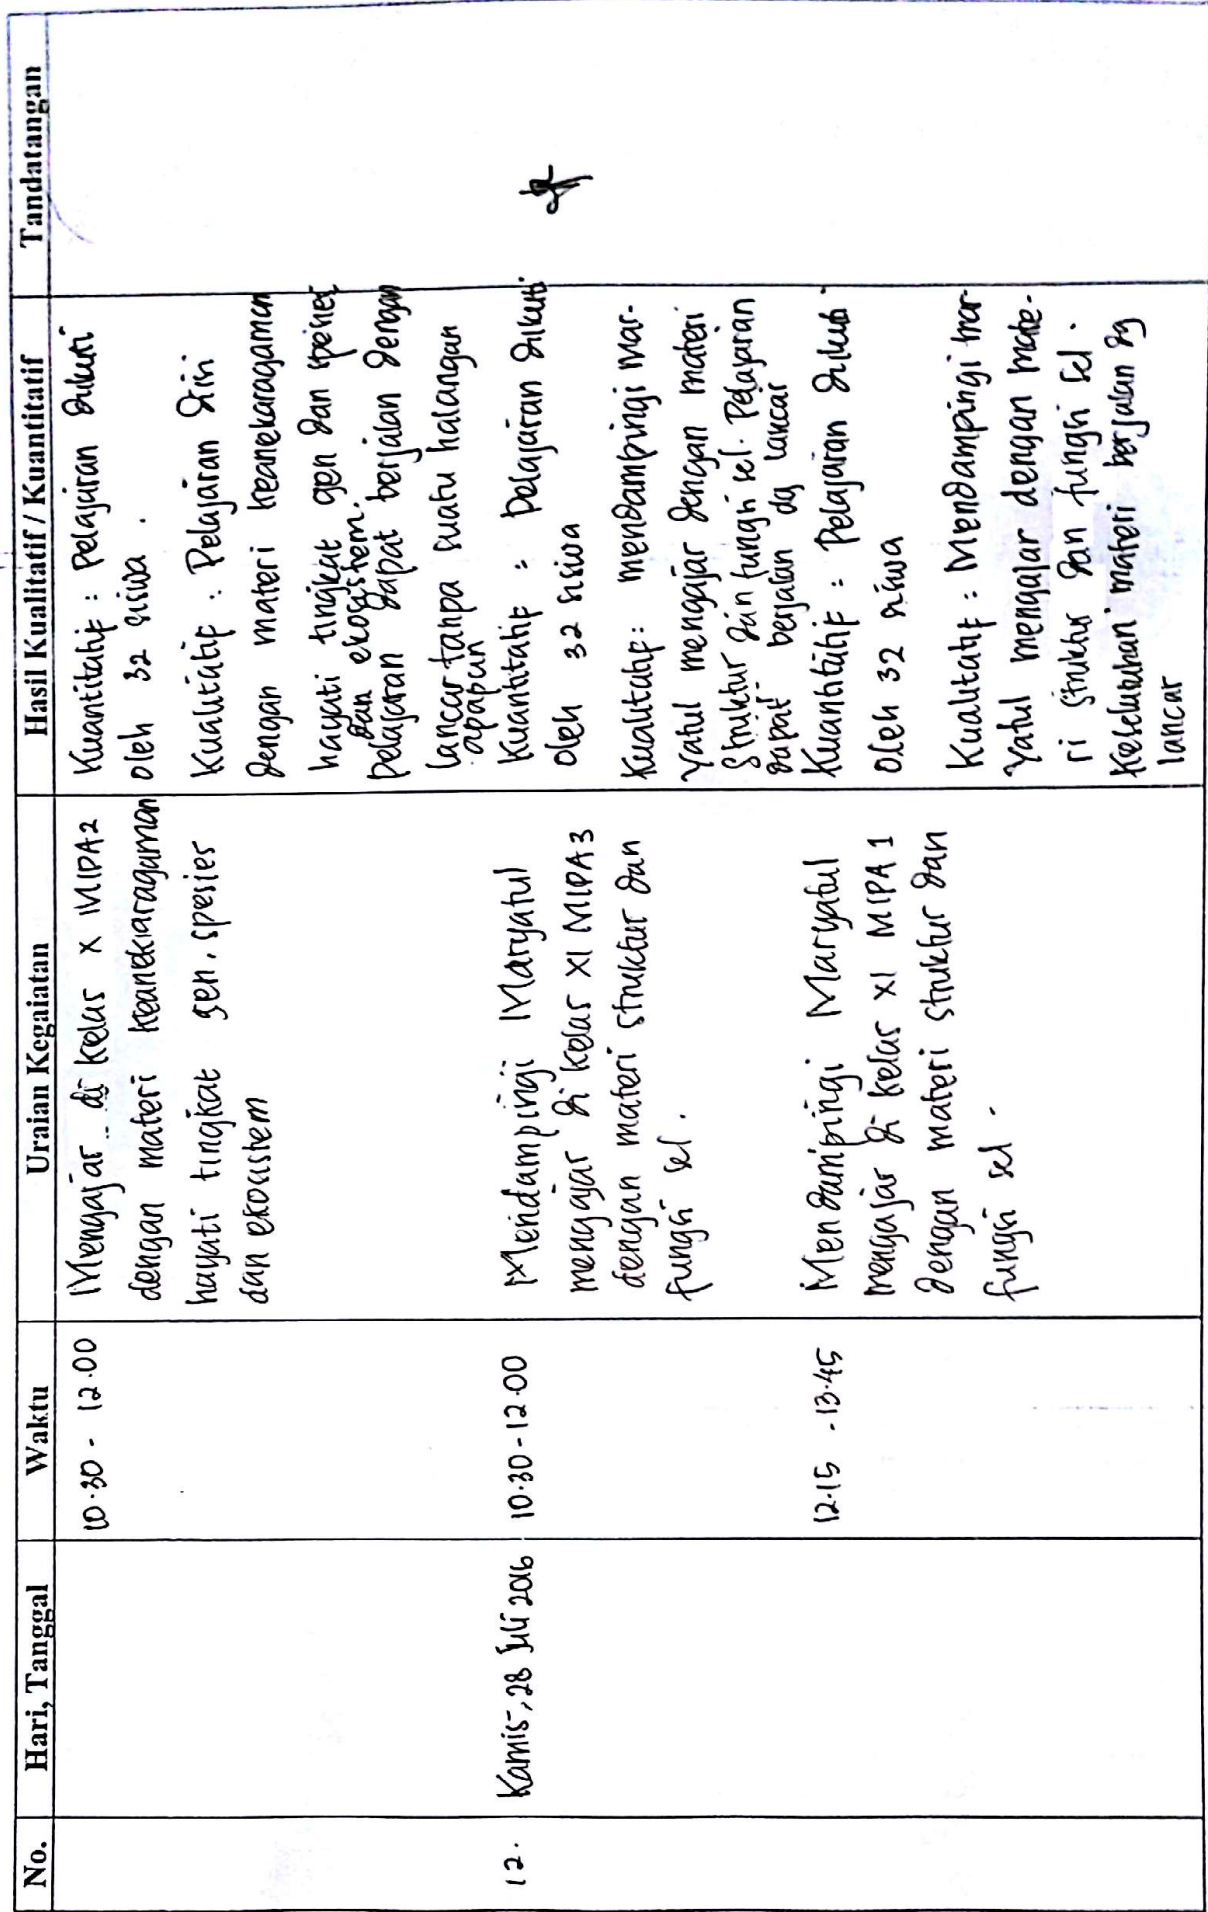 No. Hari, Tanggal Waktu Uraian Kegaiatan Hasil Kualitatif / Kuantitatif Tandatangan
10.30 - 12.00
Mengajar di kelas X MIPA2
dengan materi keanekaragaman
hayati tingkat gen, spesies
dan ekosistem
Kuantitatif : Pelajaran diikuti
oleh 32 siswa.
Kualitatif : Pelajaran diisi
dengan materi keanekaragaman
hayati tingkat gen dan spesies
dan ekosistem.
pelajaran dapat berjalan dengan
lancar tanpa suatu halangan
apapun
12.
Kamis, 28 Juli 2016
10.30 - 12.00
Mendampingi Maryatul
mengajar di kelas XI MIPA3
dengan materi struktur dan
fungsi sel.
Kuantitatif : Pelajaran diikuti
oleh 32 siswa
Kualitatif : mendampingi Mar-
yatul mengajar dengan materi
Struktur dan fungsi sel. Pelajaran
dapat berjalan dg lancar
12.15 - 13.45
Mendampingi Maryatul
mengajar di kelas XI MIPA 1
dengan materi struktur dan
fungsi sel.
Kuantitatif : Pelajaran diikuti
oleh 32 siswa
Kualitatif : Mendampingi Mar-
yatul mengajar dengan mate-
ri struktur dan fungsi sel.
Keseluruhan materi berjalan dg
lancar